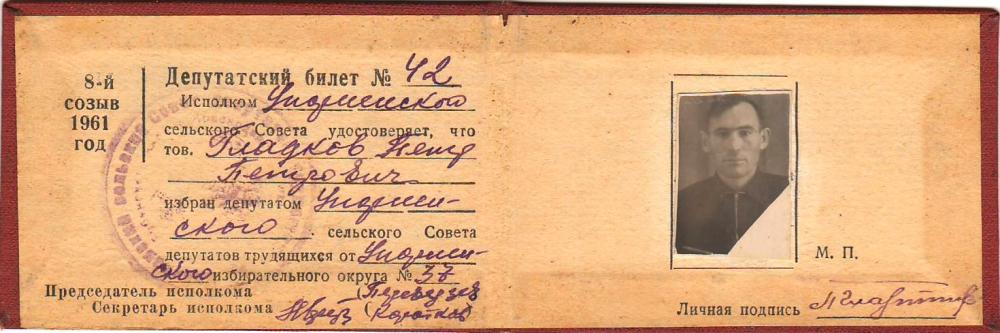 8-й
созыв
1961
год
Депутатский билет № 42
Исполком
сельского Совета удостоверяет, что
тов. Гладков Петр
Петрович
избран депутатом
ского сельского Совета
депутатов трудящихся от
ского избирательного округа № 37
Председатель исполкома
Секретарь исполкома
М. П.
Личная подпись